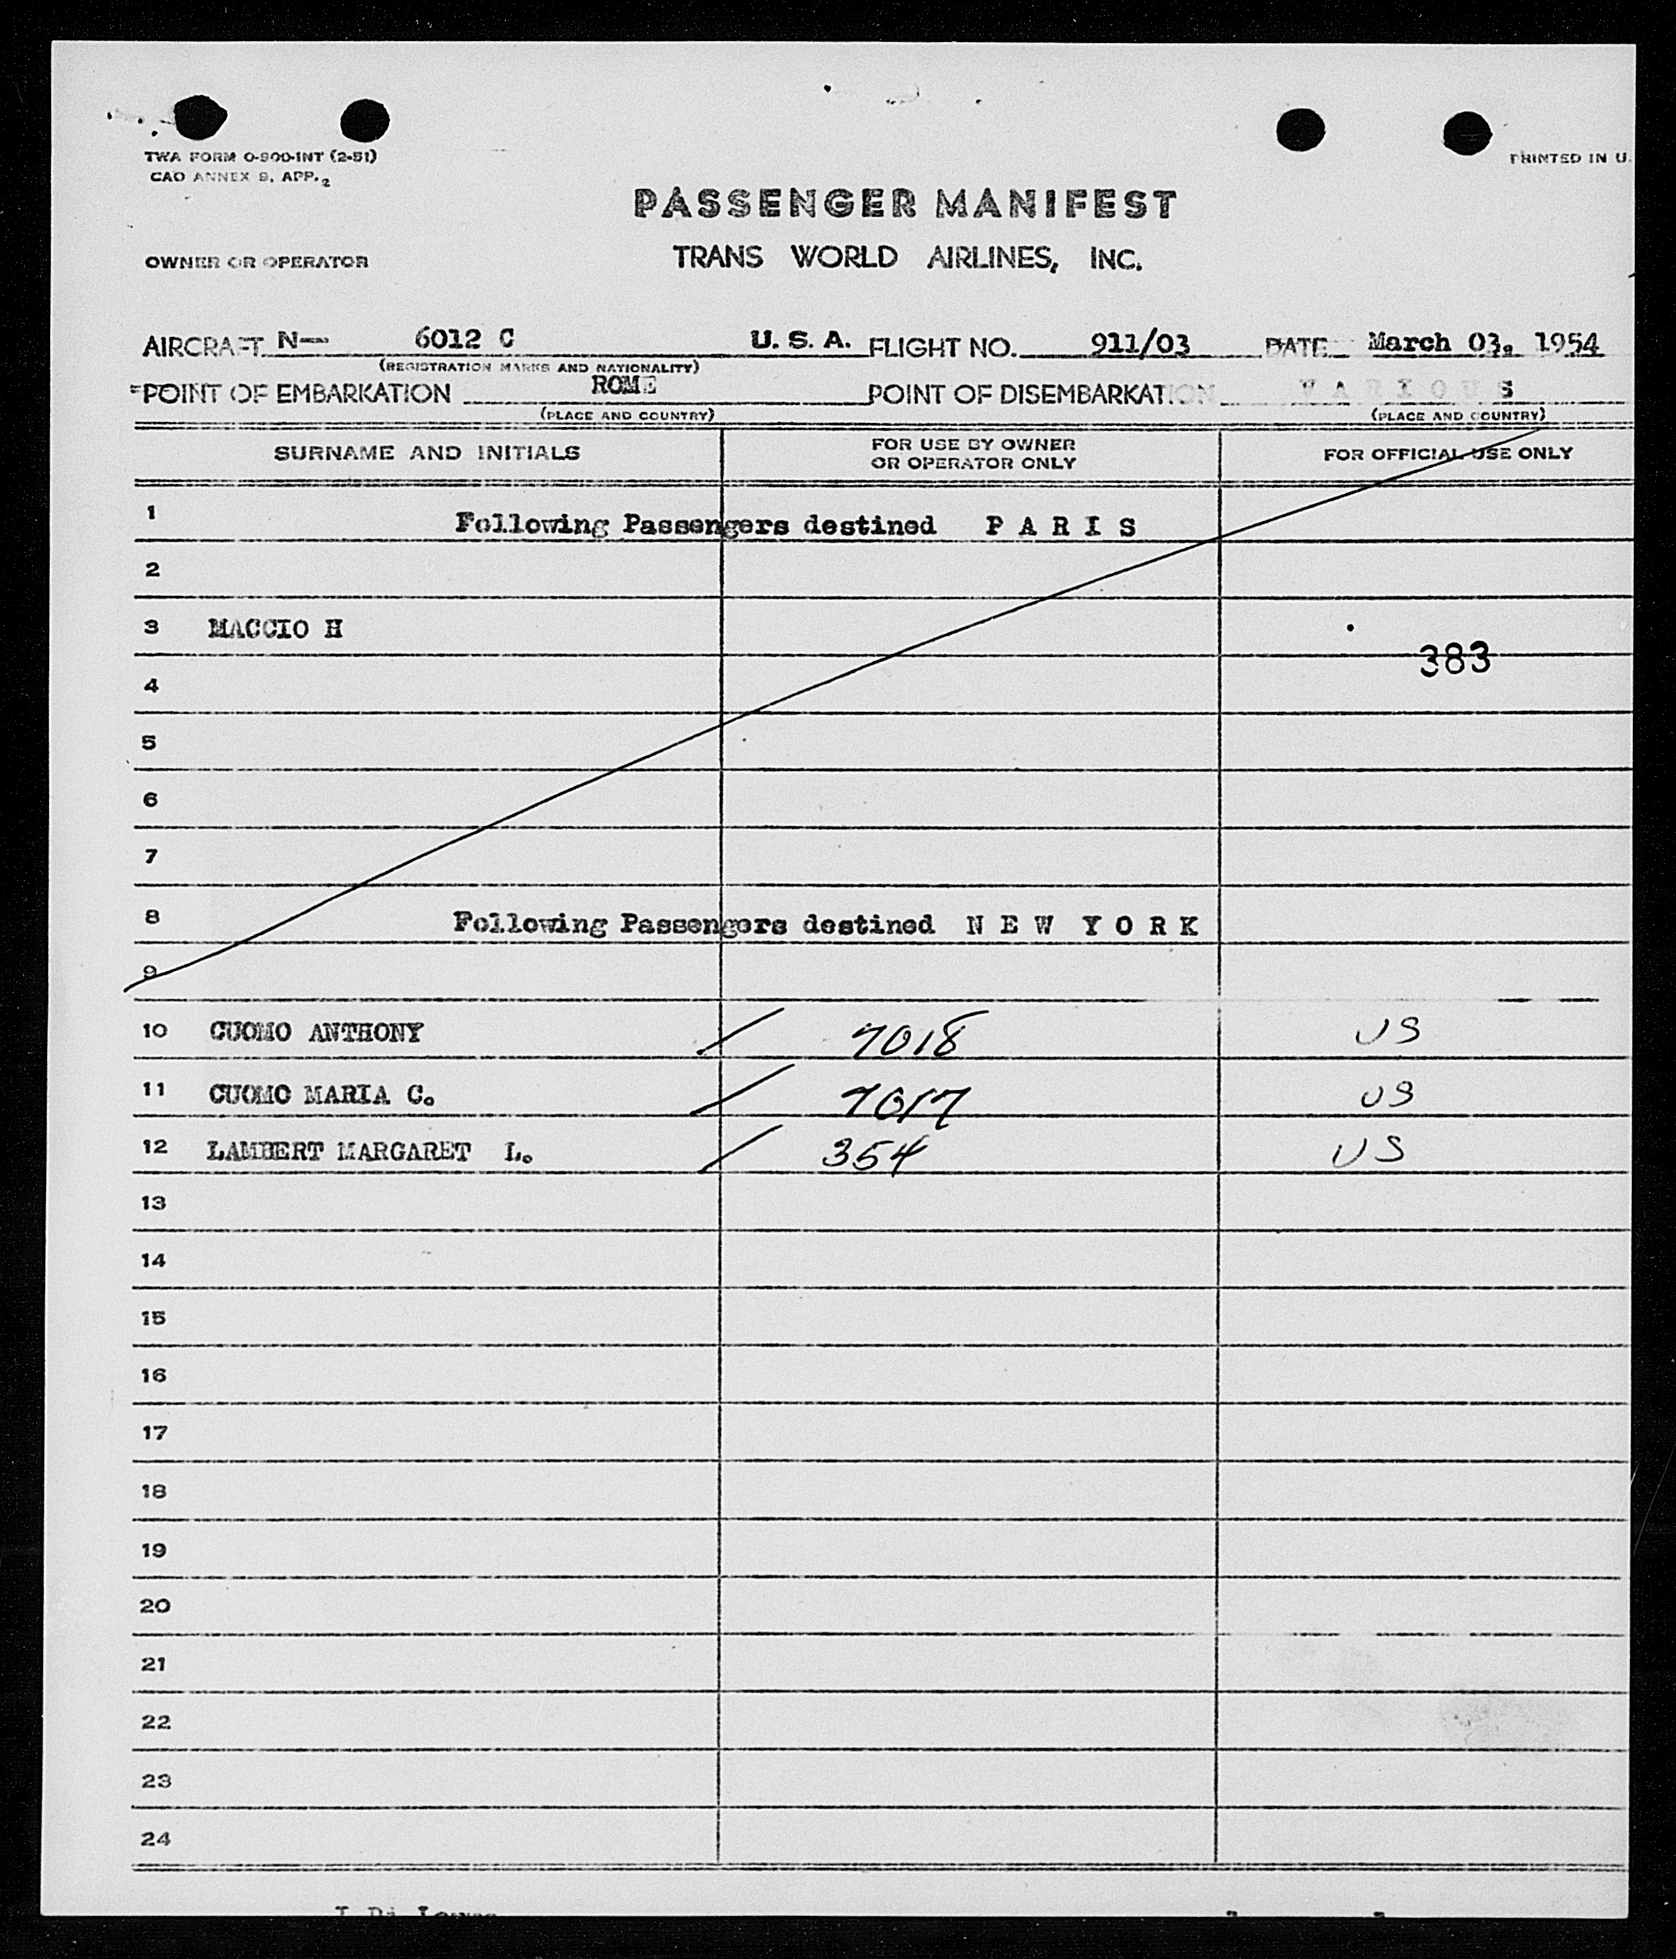 TWA FORM O-900-INT (2-51)
CAO ANNEX 9, APP. 2
PRINTED IN U.
PASSENGER MANIFEST
OWNER OR OPERATOR
TRANS WORLD AIRLINES, INC.
AIRCRAFT N— 6012 C U. S. A. FLIGHT NO. 911/03 DATE March 03. 1954
(REGISTRATION MARKS AND NATIONALITY)
POINT OF EMBARKATION ROME POINT OF DISEMBARKATION V A R I O U S
(PLACE AND COUNTRY) (PLACE AND COUNTRY)
SURNAME AND INITIALS FOR USE BY OWNER OR OPERATOR ONLY FOR OFFICIAL USE ONLY
1 Following Passengers destined P A R I S
2
3 MACCIO H
383
4
5
6
7
8 Following Passengers destined N E W Y O R K
9
10 CUOMO ANTHONY / 7018 US
11 CUOMO MARIA C. / 7017 US
12 LAMBERT MARGARET L. / 354 US
13
14
15
16
17
18
19
20
21
22
23
24